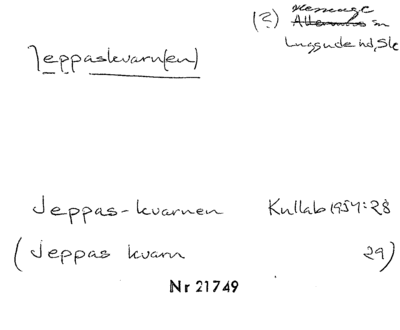 (?) Allerums sn
Luggude hd, Sk
Jeppaskvarn(en)
Jeppas-kvarnen Kullab 1957:28
(Jeppas kvarn 29)
Nr 21749